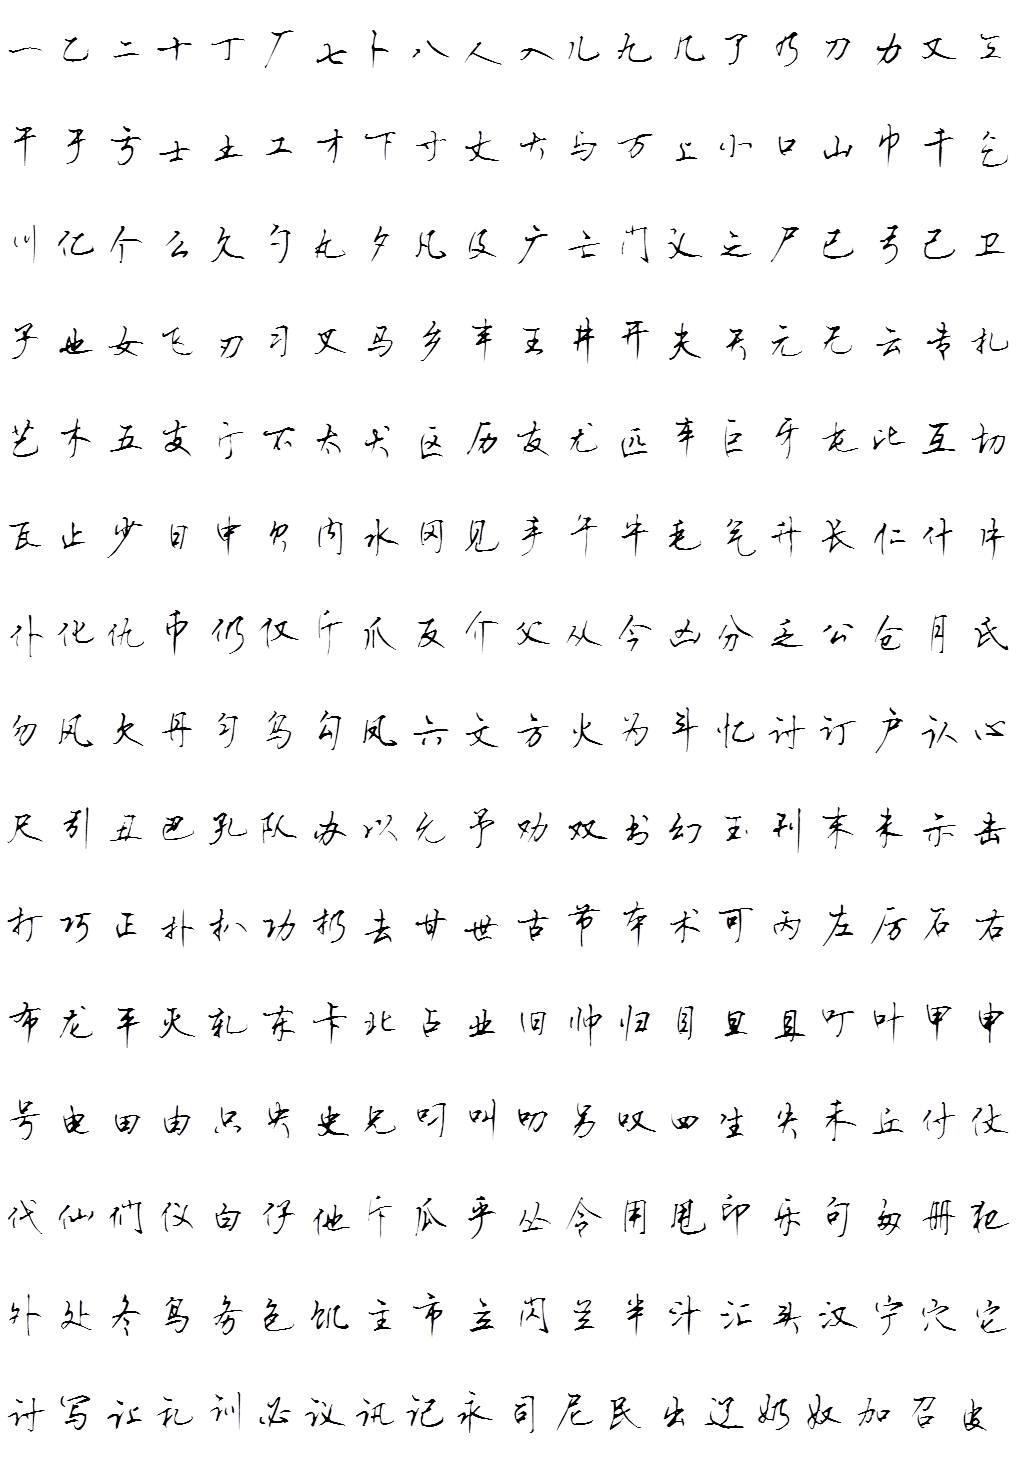 一乙二十丁厂七卜八人入儿九几了乃刀力又三
干于亏士土工才下寸丈大与万上小口山巾千乞
川亿个么久勺丸夕凡及广亡门义之尸已弓己卫
子也女飞刃习叉马乡丰王井开夫天元无云专扎
艺木五支厅不太犬区历友尤匹车巨牙屯比互切
瓦止少日中贝内水冈见手午牛毛气升长仁什片
仆化仇币仍仅斤爪反介父从今凶分乏公仓月氏
勿风欠丹匀乌勾凤六文方火为斗忆计订户认心
尺引丑巴孔队办以允予劝双书幻玉刊末未示击
打巧正扑扒功扔去甘世古节本术可丙左厉石右
布龙平灭轧东卡北占业旧帅归目旦且叮叶甲申
号电田由只央史兄叼叫叨另叹四生失禾丘付仗
代仙们仪白仔他斥瓜乎丛令用甩印乐句匆册犯
外处冬鸟务包饥主市立闪兰半汁汇头汉宁穴它
讨写让礼训必议讯记永司尼民出辽奶奴加召皮